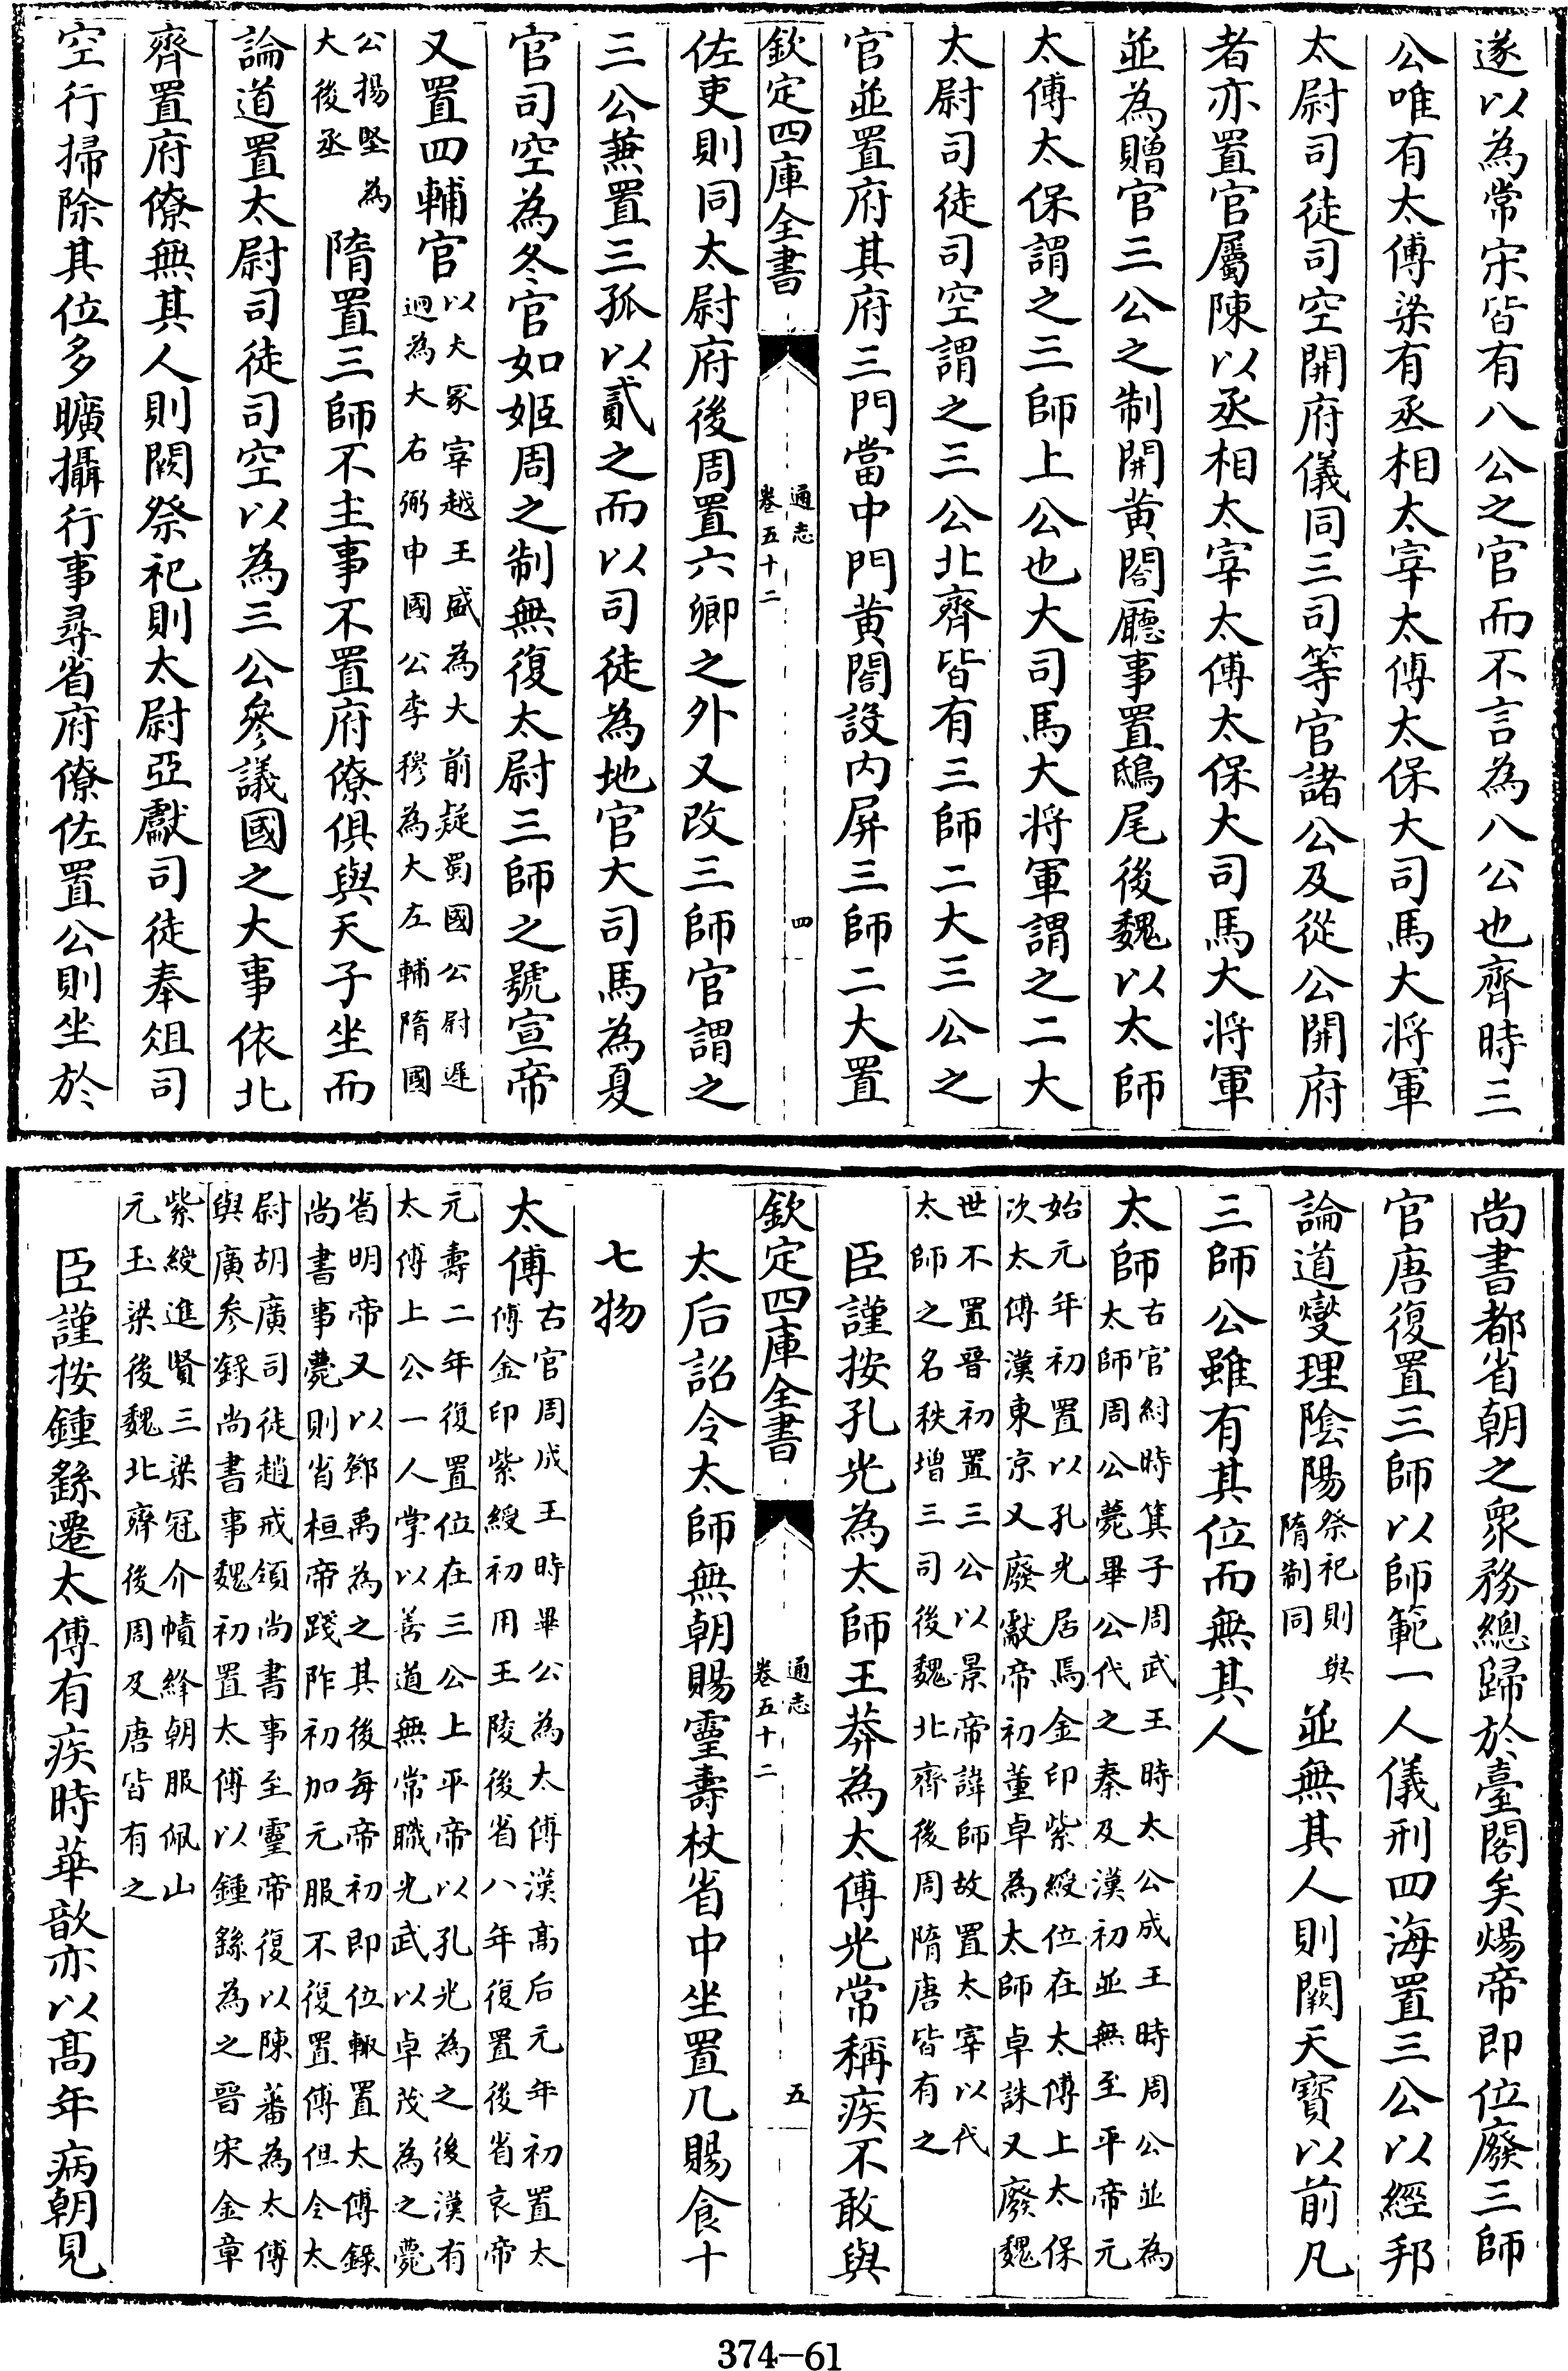 遂以為常宋皆有八公之官而不言為八公也齊時三
公唯有太傅梁有丞相太宰太傅太保大司馬大將軍
太尉司徒司空開府儀同三司等官諸公及從公開府
者亦置官屬陳以丞相太宰太傅太保大司馬大將軍
並為贈官三公之制開黃閣廳事置鴟尾後魏以太師
太傅太保謂之三師上公也大司馬大將軍謂之二大
太尉司徒司空謂之三公北齊皆有三師二大三公之
官並置府其府三門當中門黃閤設内屏三師二大置
欽定四庫全書
通志
卷五十二
四
佐吏則同太尉府後周置六卿之外又改三師官謂之
三公兼置三孤以貳之而以司徒為地官大司馬為夏
官司空為冬官如姬周之制無復太尉三師之號宣帝
又置四輔官以大冢宰越王盛為大前疑蜀國公尉遲
迥為大右弼申國公李穆為大左輔隋國
公揚堅為
大後丞
隋置三師不主事不置府僚俱與天子坐而
論道置太尉司徒司空以為三公參議國之大事依北
齊置府僚無其人則闕祭祀則太尉亞獻司徒奉俎司
空行掃除其位多曠攝行事尋省府僚佐置公則坐於
尚書都省朝之衆務總歸於臺閣矣煬帝即位廢三師
官唐復置三師以師範一人儀刑四海置三公以經邦
論道燮理陰陽祭祀則與
隋制同
並無其人則闕天寳以前凡
三師公雖有其位而無其人
太師古官紂時箕子周武王時太公成王時周公並為
太師周公薨畢公代之秦及漢初並無至平帝元
始元年初置以孔光居焉金印紫綬位在太傅上太保
次太傅漢東京又廢獻帝初董卓為太師卓誅又廢魏
世不置晉初置三公以景帝諱師故置太宰以代
太師之名秩增三司後魏北齊後周隋唐皆有之
臣謹按孔光為太師王莽為太傅光常稱疾不敢與
欽定四庫全書
通志
卷五十二
五
太后詔令太師無朝賜靈壽杖省中坐置几賜食十
七物
太傅古官周成王時畢公為太傅漢高后元年初置太
傅金印紫綬初用王陵後省八年復置後省哀帝
元壽二年復置位在三公上平帝以孔光為之後漢有
太傅上公一人掌以善道無常職光武以卓茂為之薨
省明帝又以鄧禹為之其後每帝初即位輙置太傅錄
尚書事薨則省桓帝踐阼初加元服不復置傅但令太
尉胡廣司徒趙戒領尚書事至靈帝復以陳蕃為太傅
與廣參錄尚書事魏初置太傅以鍾繇為之晉宋金章
紫綬進賢三梁冠介幘絳朝服佩山
元玉梁後魏北齊後周及唐皆有之
臣謹按鍾繇遷太傅有疾時華歆亦以高年病朝見
374-61